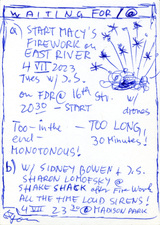 WAITING FOR / @
a) START MACY'S
FIREWORK on
EAST RIVER
4 VII 2023
Tues w/ J.S.
on FDR @ 16th Str.
20:30 — START
w/ drones
Too—in the — TOO LONG,
end— 30 Minutes!
MONOTONOUS!
b) W/ SIDNEY BOWEN + J.S.
SHARON LOMOFSKY @
SHAKE SHACK after FireWork
ALL THE TIME LOUD SIRENS!
4 VII 23 @ MADISON PARK